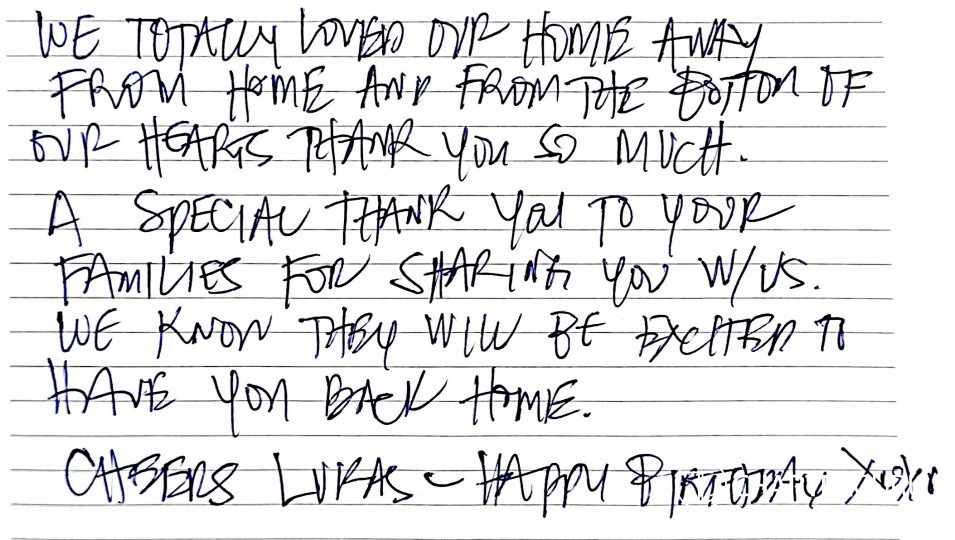 WE TOTALLY LOVED OUR HOME AWAY
FROM HOME AND FROM THE BOTTOM OF
OUR HEARTS THANK YOU SO MUCH.
A SPECIAL THANK YOU TO YOUR
FAMILIES FOR SHARING YOU W/US.
WE KNOW THEY WILL BE EXCITED TO
HAVE YOU BACK HOME.
CHEERS LUKAS - HAPPY BIRTHDAY XOXO